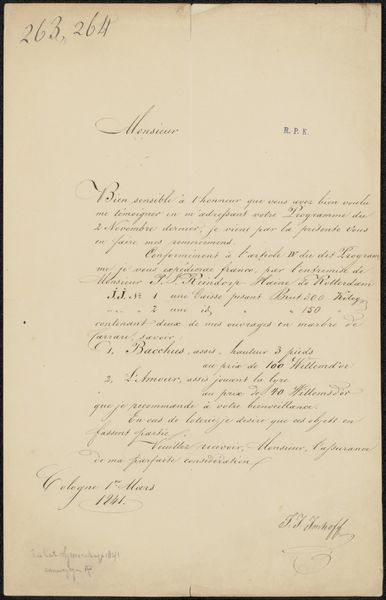 263, 264
Monsieur
R. P. K.
Bien sensible à l'honneur que vous avez bien voulu
me témoigner en m'adressant votre Programme du
2 Novembre dernier, je viens par la présente vous
en faire mes remerciemens.
Conformément à l'article IV du dit Program
me je vous expédierai franco, par l'entremise de
Monsieur Reindorp Haine de Rotterdam
J.J. No 1 une Caisse pesant Brut 300 Kilog
" " 2 une id " " 150
contenant deux de mes ouvrages en marbre de
Carrare, savoir;
1, Bacchus, assis, hauteur 3 pieds
au prix de 100 Willemd'or
2, L'Amour, assis jouant la lyre
au prix de 40 Willemsd'or
que je recommande à votre bienveillance.
En cas de loterie, je desire que ces objets en
fassent partie.
Veuillez recevoir, Monsieur, l'assurance
de ma parfaite consideration
Cologne 1er Mars
1841.
Imhoff